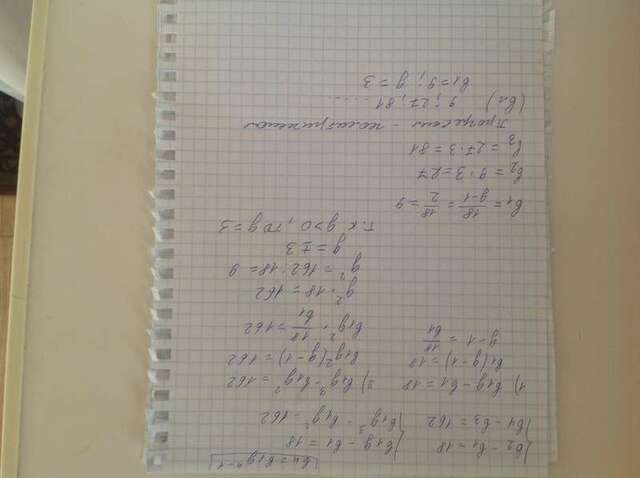 bn = b1g^n-1
{b2 - b1 = 18
{b4 - b3 = 162
{b1g - b1 = 18
{b1g^3 - b1g^2 = 162
1) b1g - b1 = 18
b1(g-1) = 18
g-1 = 18/b1
2) b1g^3 - b1g^2 = 162
b1g^2(g-1) = 162
b1g^2 · 18/b1 = 162
g^2 · 18 = 162
g^2 = 162 : 18 = 9
g = ± 3
т.к g>0, то g = 3
b1 = 18/g-1 = 18/2 = 9
b2 = 9 · 3 = 27
b3 = 27 · 3 = 81
Прогрессия - геометрическая
(bn) 9; 27, 81 .....
b1 = 9; g = 3